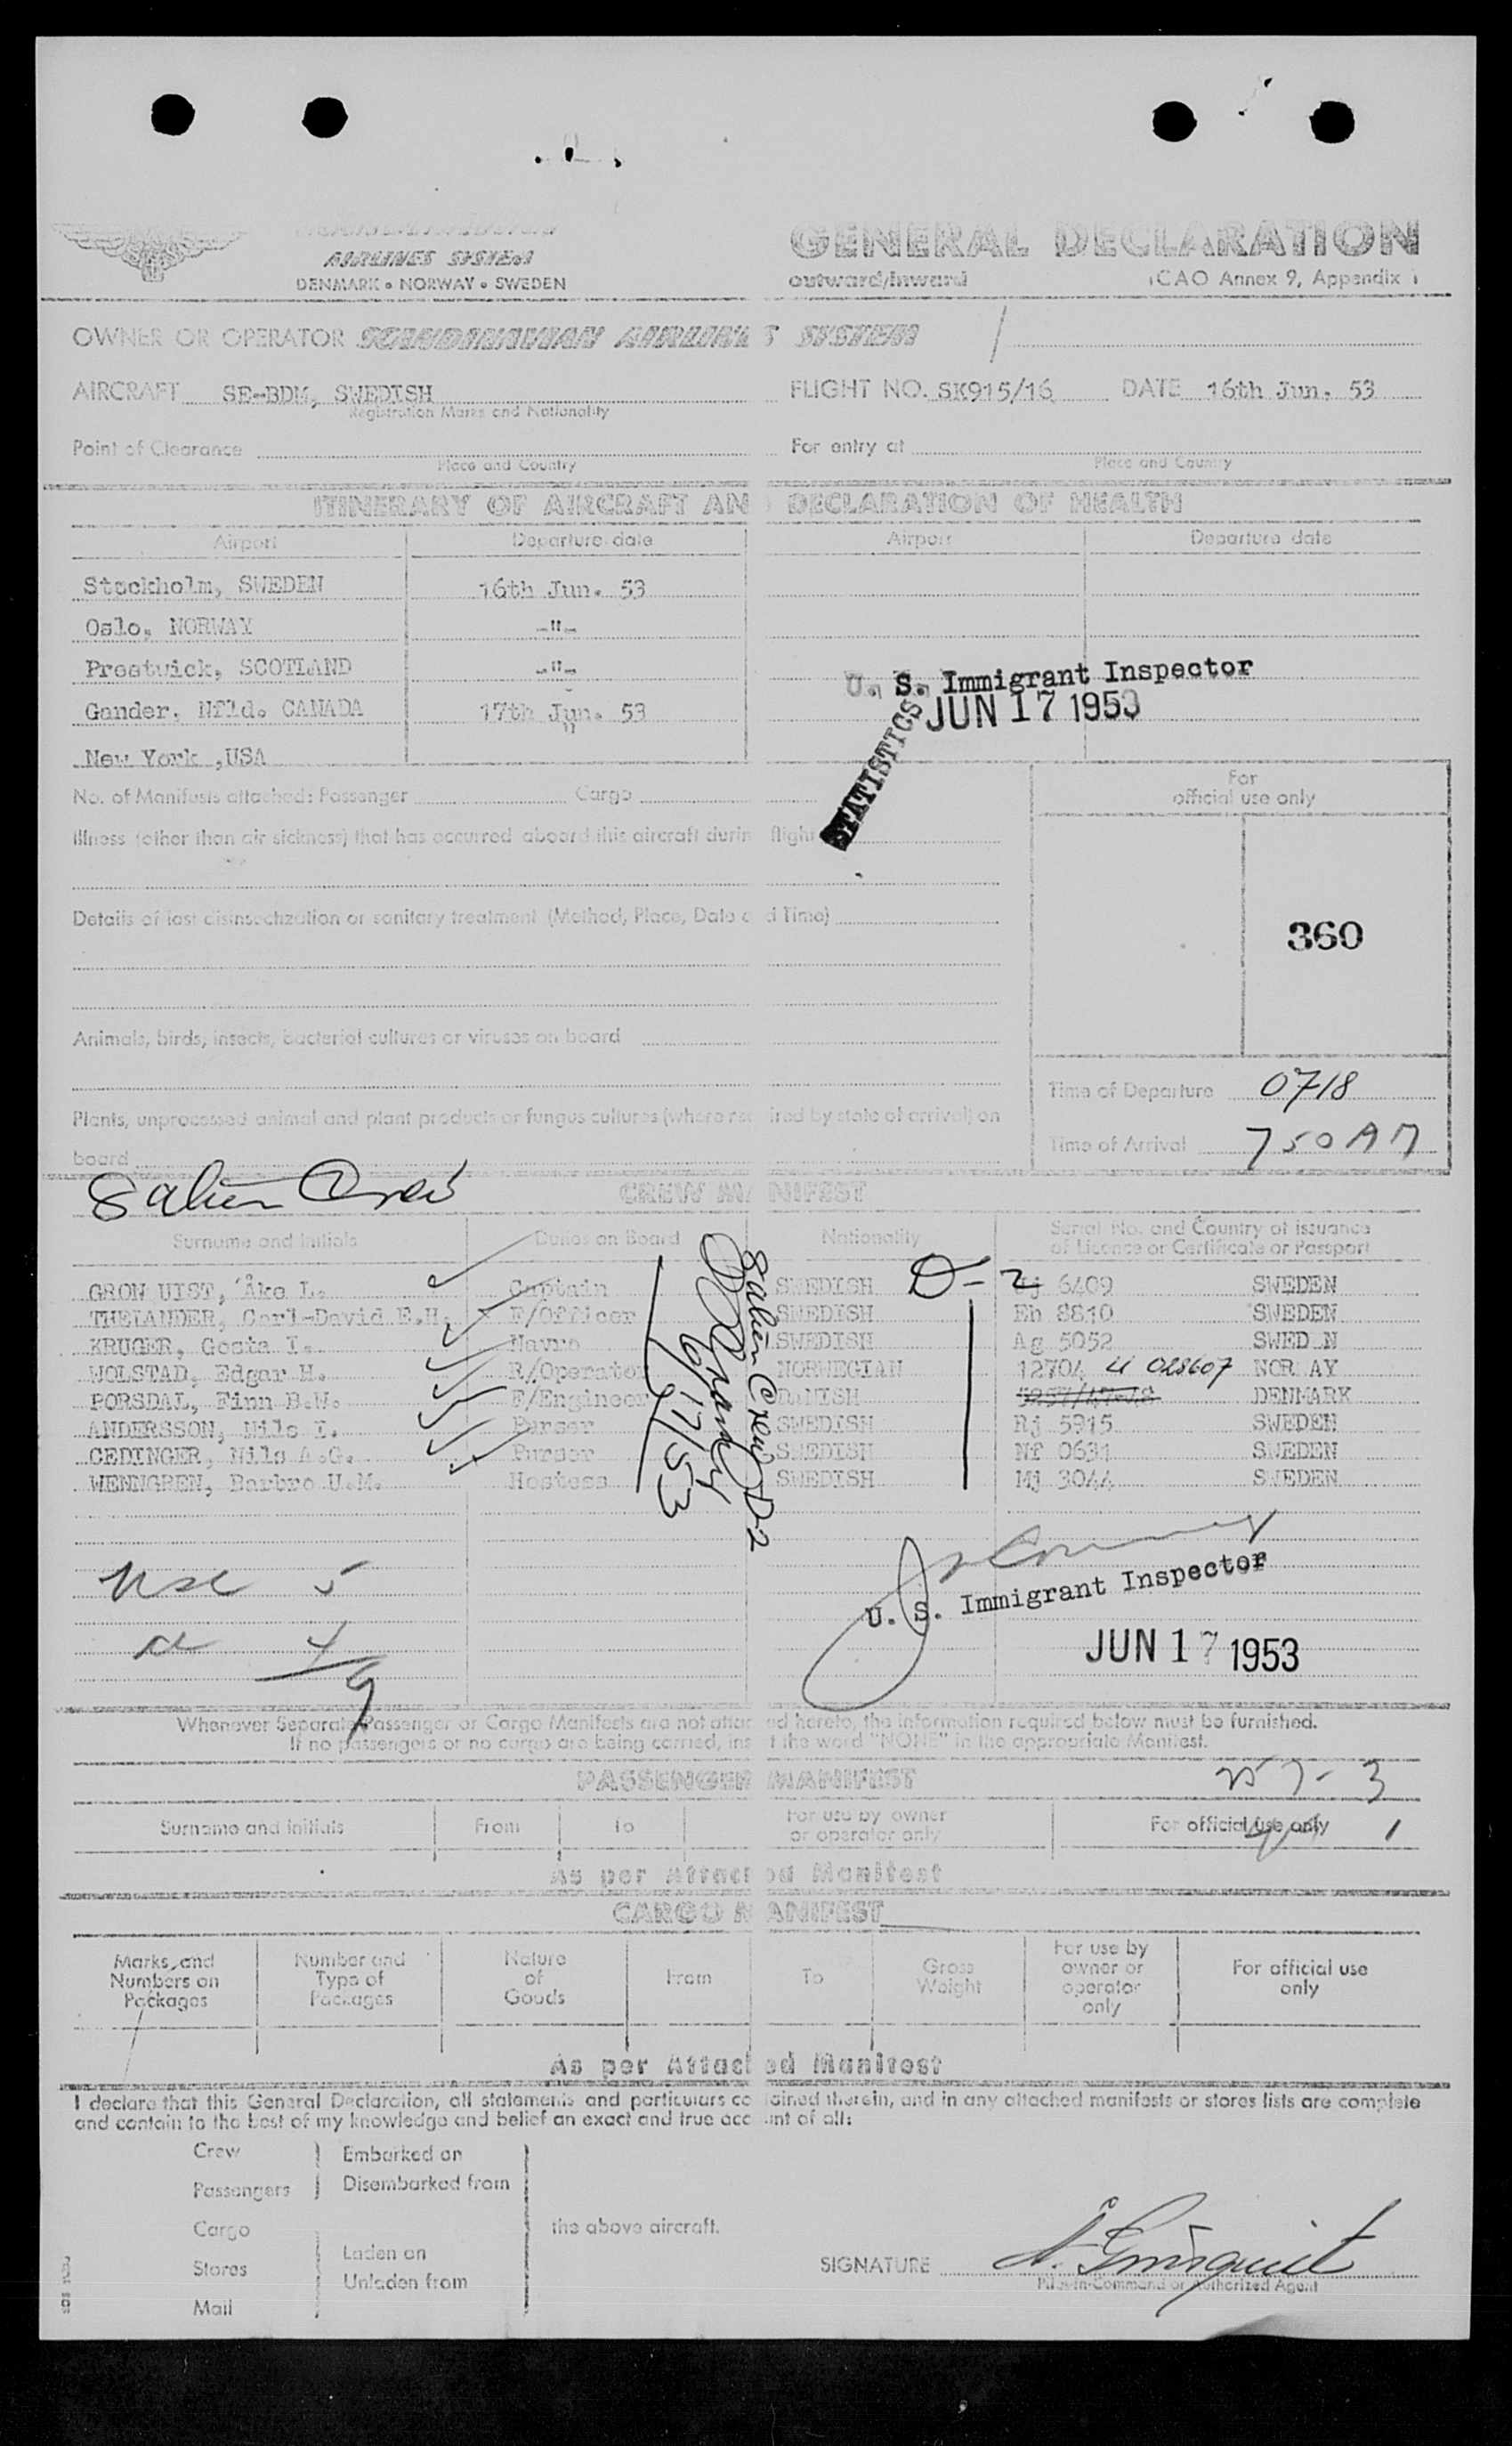 AIRLINES SYSTEM
DENMARK • NORWAY • SWEDEN
GENERAL DECLARATION
outward/inward
ICAO Annex 9, Appendix 1
OWNER OR OPERATOR SCANDINAVIAN AIRLINES SYSTEM
AIRCRAFT SE-BDM, SWEDISH
Registration Marks and Nationality
FLIGHT NO. SK915/16 DATE 16th Jun. 53
Point of Clearance
Place and Country
For entry at
Place and Country
ITINERARY OF AIRCRAFT AN DECLARATION OF HEALTH
Airport Departure date Airport Departure date
Stockholm, SWEDEN 16th Jun. 53
Oslo, NORWAY -"-
Prestwick, SCOTLAND -"-
Gander, Nfld. CANADA 17th Jun. 53
New York ,USA "
U. S. Immigrant Inspector
JUN 17 1953
STATISTICS
No. of Manifests attached: Passenger Cargo
For
official use only
Illness (other than air sickness) that has occurred aboard this aircraft durin flight
Details of last disinsectization or sanitary treatment (Method, Place, Date a d Time)
360
Animals, birds, insects, bacterial cultures or viruses on board
Time of Departure 0718
Plants, unprocessed animal and plant products or fungus cultures (where req ired by state of arrival) on
board
Time of Arrival 750 AM
Crew
CREW MA NIFEST
Surname and Initials Duties on Board Nationality Serial No. and Country of issuance
of Licence or Certificate or Passport
GRON UIST, Åke L. Captain SWEDISH D-2 6409 SWEDEN
THELANDER, Carl-David E.H. F/Officer SWEDISH Eh 8810 SWEDEN
KRUGER, Gosta I. Navro SWEDISH Ag 5052 SWED N
WOLSTAD, Edgar H. R/Operator NORWEGIAN 12704 U 028607 NOR AY
PORSDAL, Finn B.W. F/Engineer D NISH DENMARK
ANDERSSON, Nils I. Purser SWEDISH Rj 5915 SWEDEN
CEDINGER, Nils A.G. Purser S EDISH Nf 0631 S EDEN
WENNGREN, Barbro U.M. Hostess SWEDISH Mj 3044 S EDEN
Crew D-2
6/17/53
usc 5
a 4
9
U. S. Immigrant Inspector
JUN 17 1953
Whenever Separate Passenger or Cargo Manifests are not attac ed hereto, the information required below must be furnished.
If no passengers or no cargo are being carried, ins t the word "NONE" in the appropriate Manifest.
PASSENGER MANIFEST
Surname and initials From To For use by owner
or operator only For official use only 1
As per Attach ed Manifest
CARGO M ANIFEST
Marks and
Numbers on
Packages
Number and
Type of
Packages
Nature
of
Goods
From
To
Gross
Weight
For use by
owner or
operator
only
For official use
only
As per Attach ed Manifest
I declare that this General Declaration, all statements and particulars co tained therein, and in any attached manifests or stores lists are complete
and contain to the best of my knowledge and belief an exact and true acc unt of all:
Crew
Passengers
Embarked on
Disembarked from
Cargo
Stores
Mail
Laden on
Unladen from
the above aircraft.
SIGNATURE
Pilot-in-Command or Authorized Agent